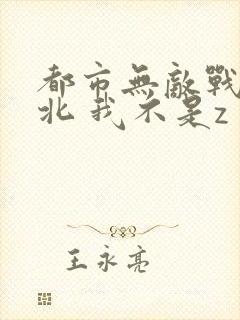 都市無敵戰
北我不是z
王永亮